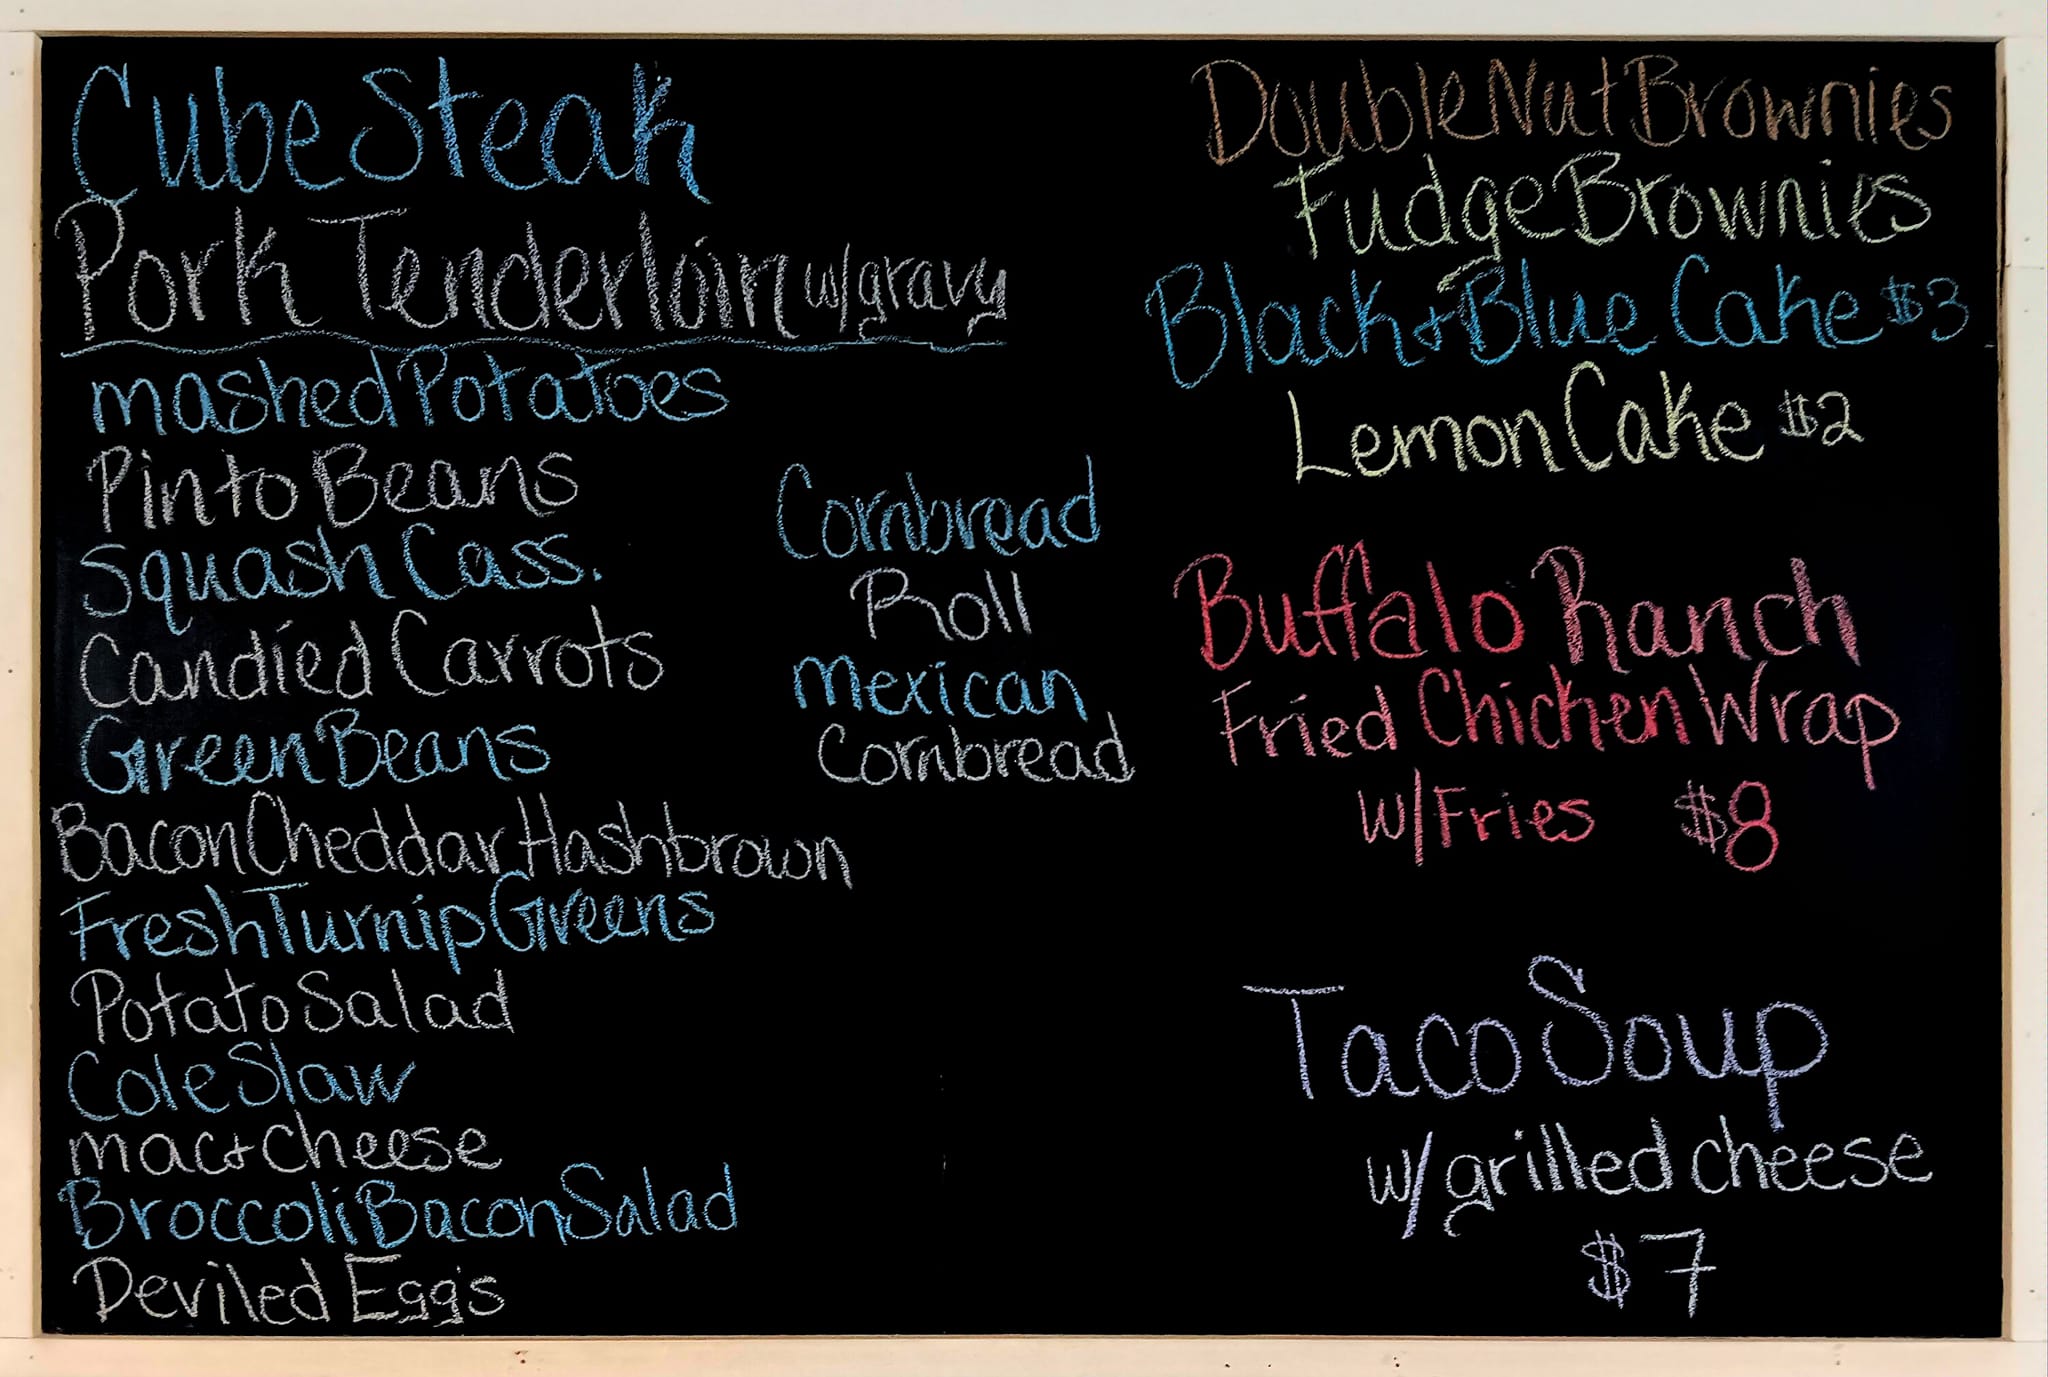 Cube Steak
Pork Tenderloin w/gravy
mashed Potatoes
Pinto Beans
Squash Cass.
Candied Carrots
Green Beans
Bacon Cheddar Hashbrown
Fresh Turnip Greens
Potato Salad
Cole Slaw
mac+cheese
Broccoli Bacon Salad
Deviled Eggs
Cornbread
Roll
Mexican
Cornbread
Double Nut Brownies
Fudge Brownies
Black+Blue Cake $3
Lemon Cake $2
Buffalo Ranch
Fried Chicken Wrap
w/Fries $8
Taco Soup
w/grilled cheese
$7